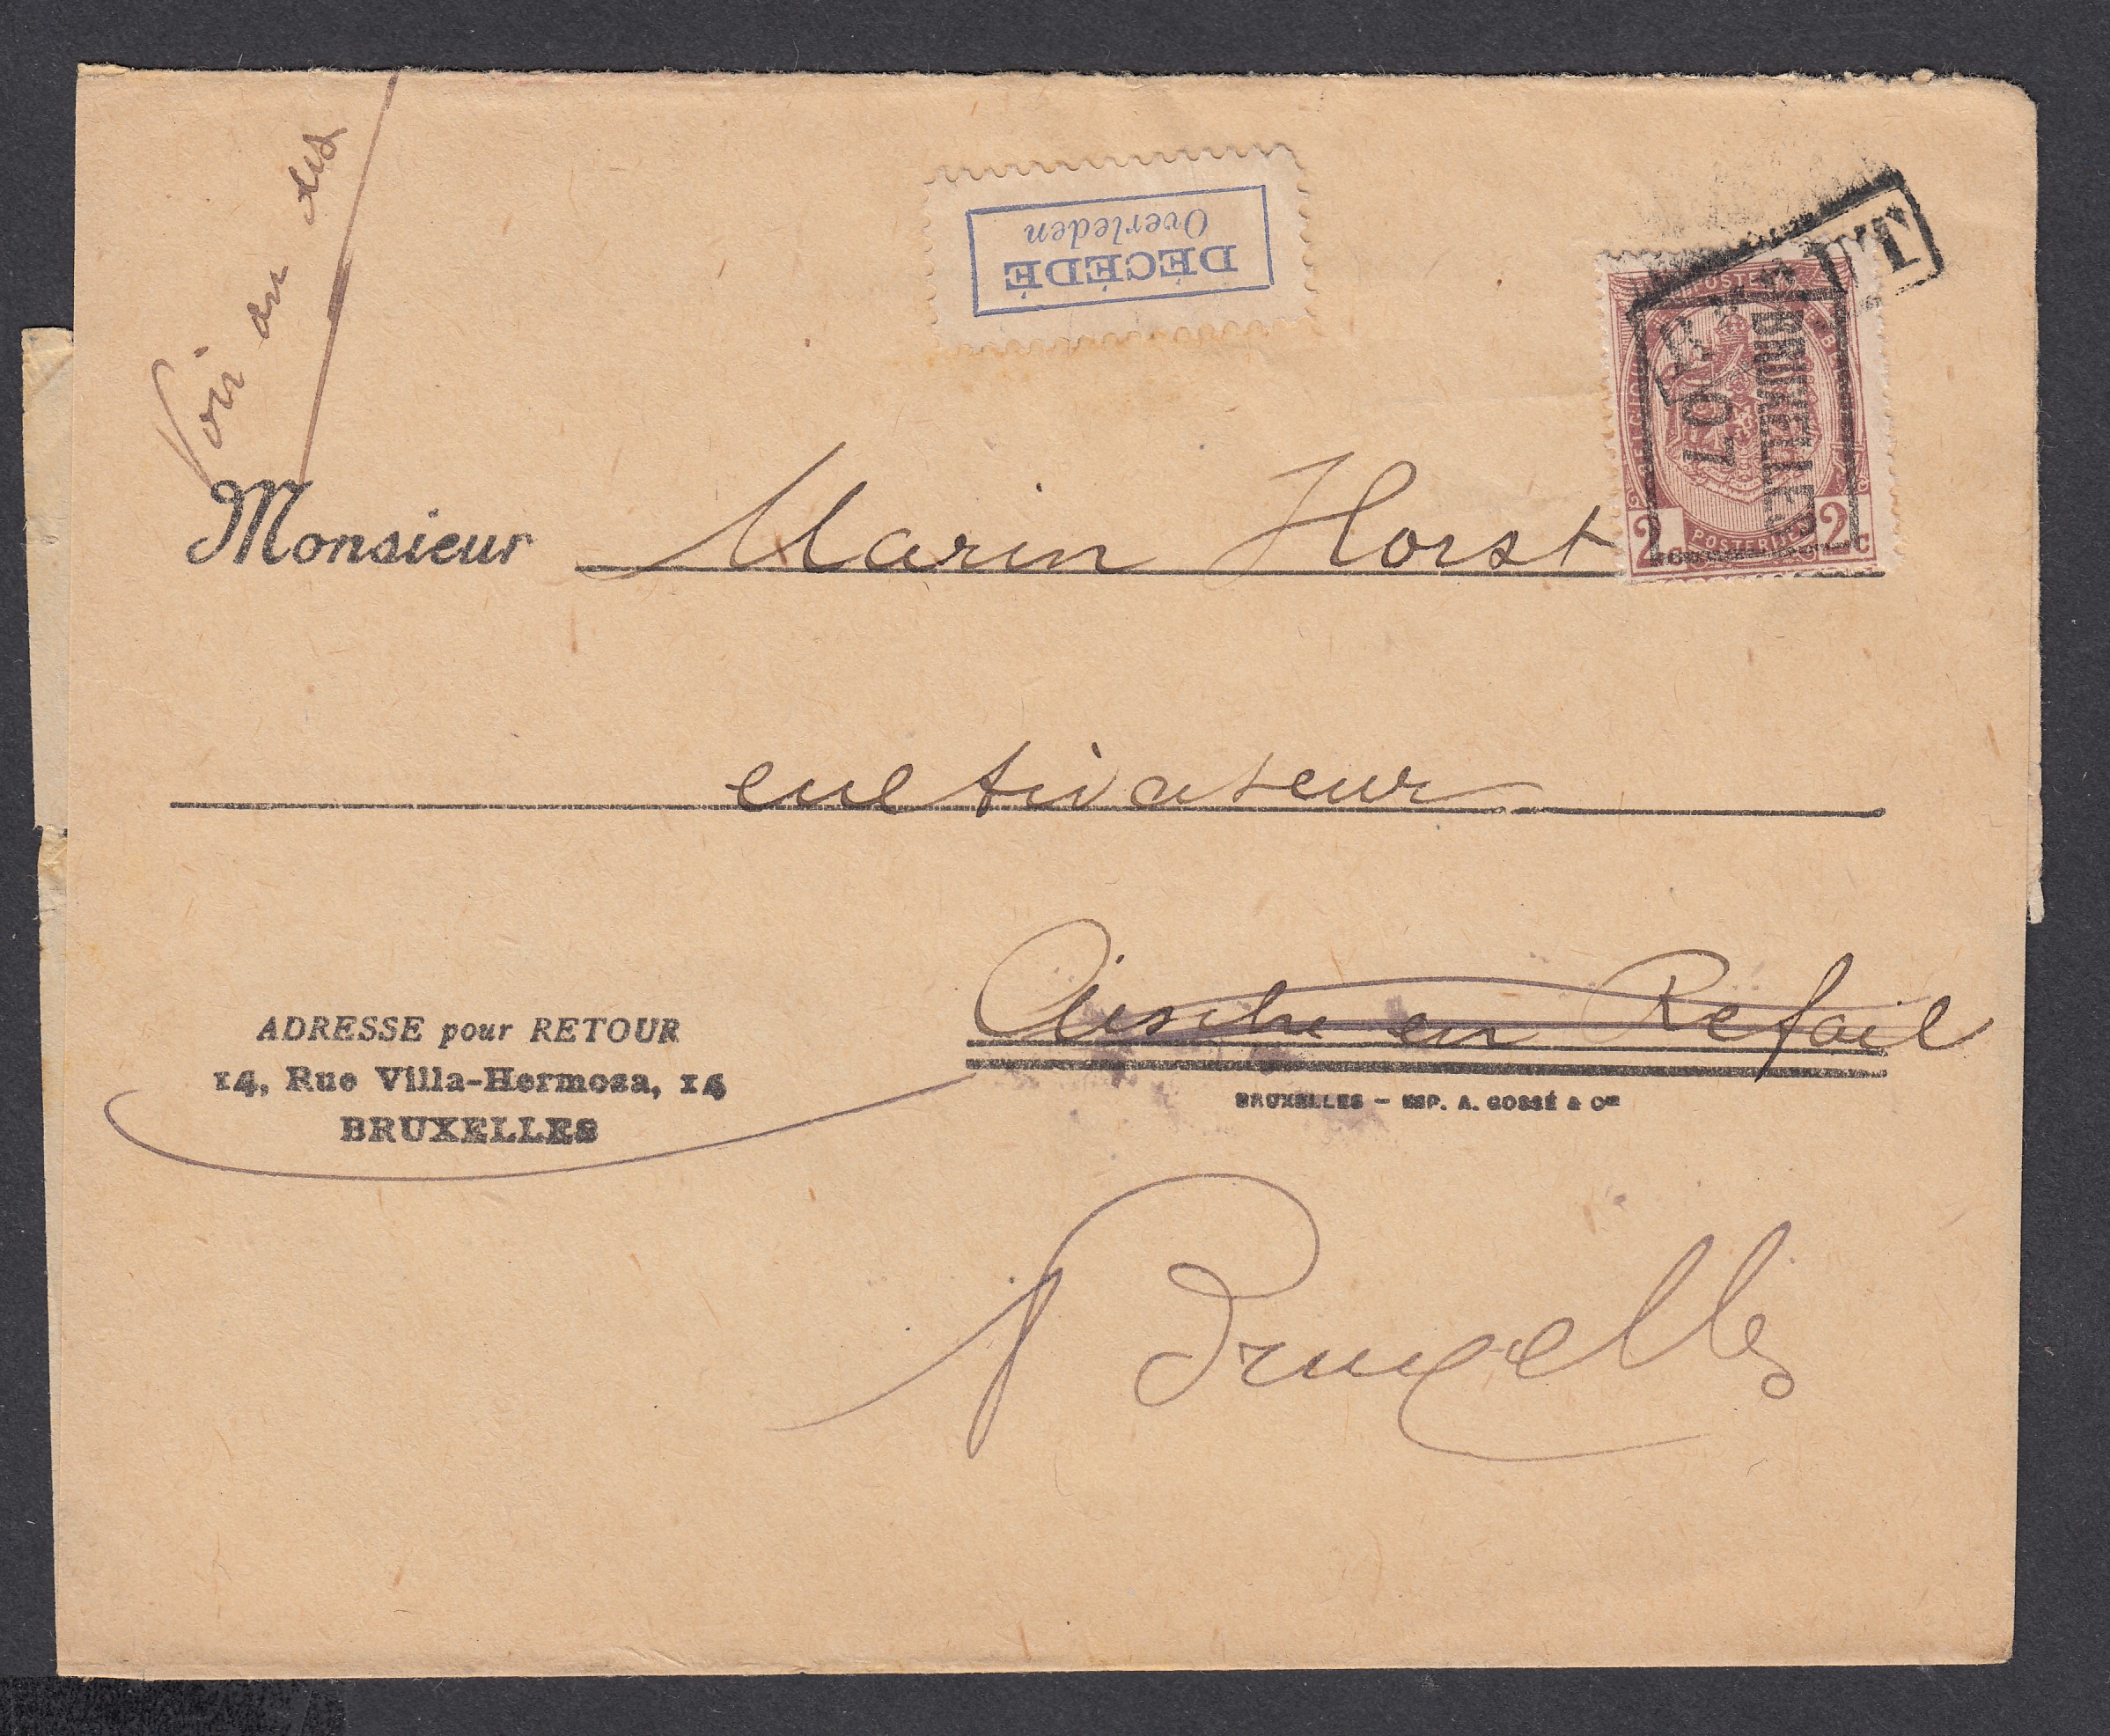 Voir au dos
DÉCÉDÉ
Overleden
BRUXELLES
07
POSTERIJEN
2 c 2 c
Monsieur Marin Horst
cultivateur
Oische en Refail
ADRESSE pour RETOUR
14, Rue Villa-Hermosa, 14
BRUXELLES
BRUXELLES - IMP. A. GOSSÉ & Cie
Bruxelles